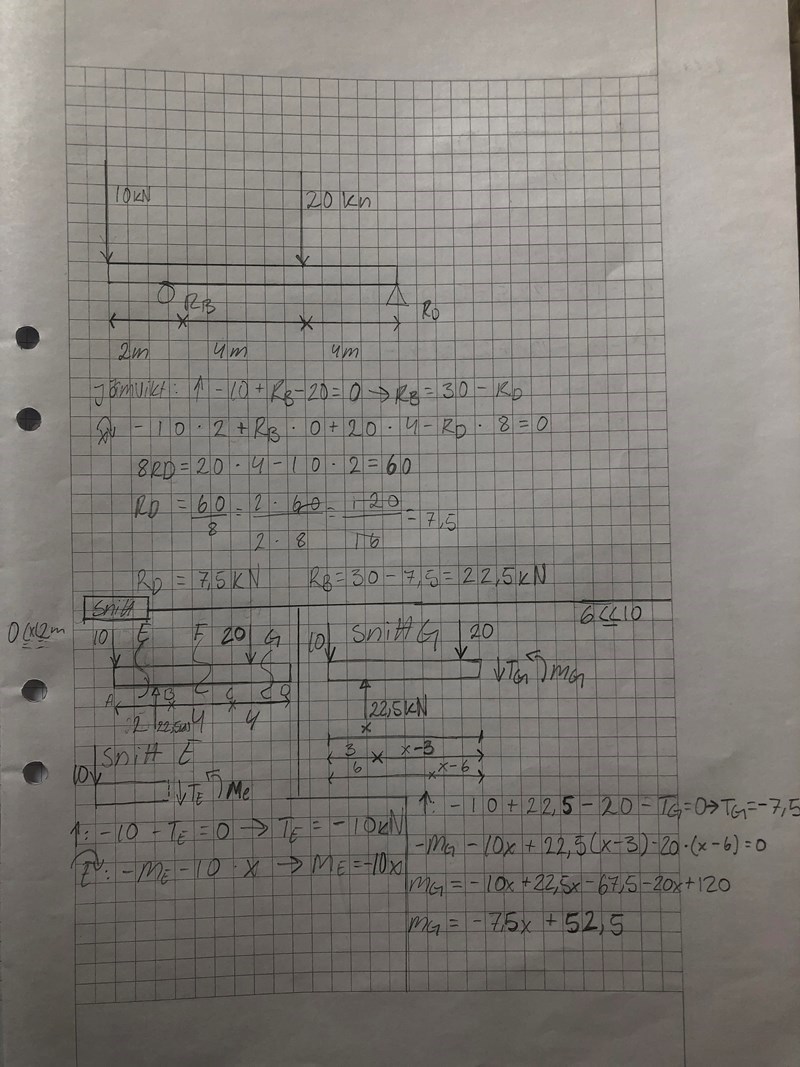 10kN
20 kn
RB
RD
2m 4m 4m
Jämvikt: ↑ -10+RB-20=0 → RB=30-RD
-10·2+RB·0+20·4-RD·8=0
8RD=20·4-10·2=60
RD = 60/8 = 2·60/2·8 = 120/16 = 7,5
RD = 7,5kN RB=30-7,5=22,5kN
Snitt
0<x<2m
10 E F 20 G
A B C D
2 22,5kN 4 4
Snitt E
10
TE Me
↑: -10-TE=0 → TE=-10kN
E: -ME-10·x → ME=-10x
6<x<10
10 Snitt G 20
TG MG
22,5kN
x
3 x x-3
6 x-6
↑: -10+22,5-20-TG=0→TG=-7,5
-MG-10x+22,5(x-3)-20·(x-6)=0
MG=-10x+22,5x-67,5-20x+120
MG=-7,5x+52,5